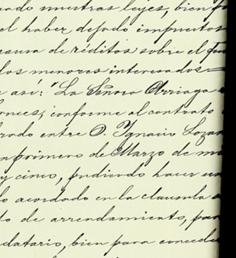 nuestras leyes, bien
el haber dejado impuestos
causa de réditos sobre el
los menores interesados
así: "La Señora Arriaga
conforme al contrato
entre D. Ygnacio Lozan
primero de Marzo de m
y cinco, pudiendo hacer
lo acordado en la clausula
to de arrendamiento, par
datario, bien para conceder